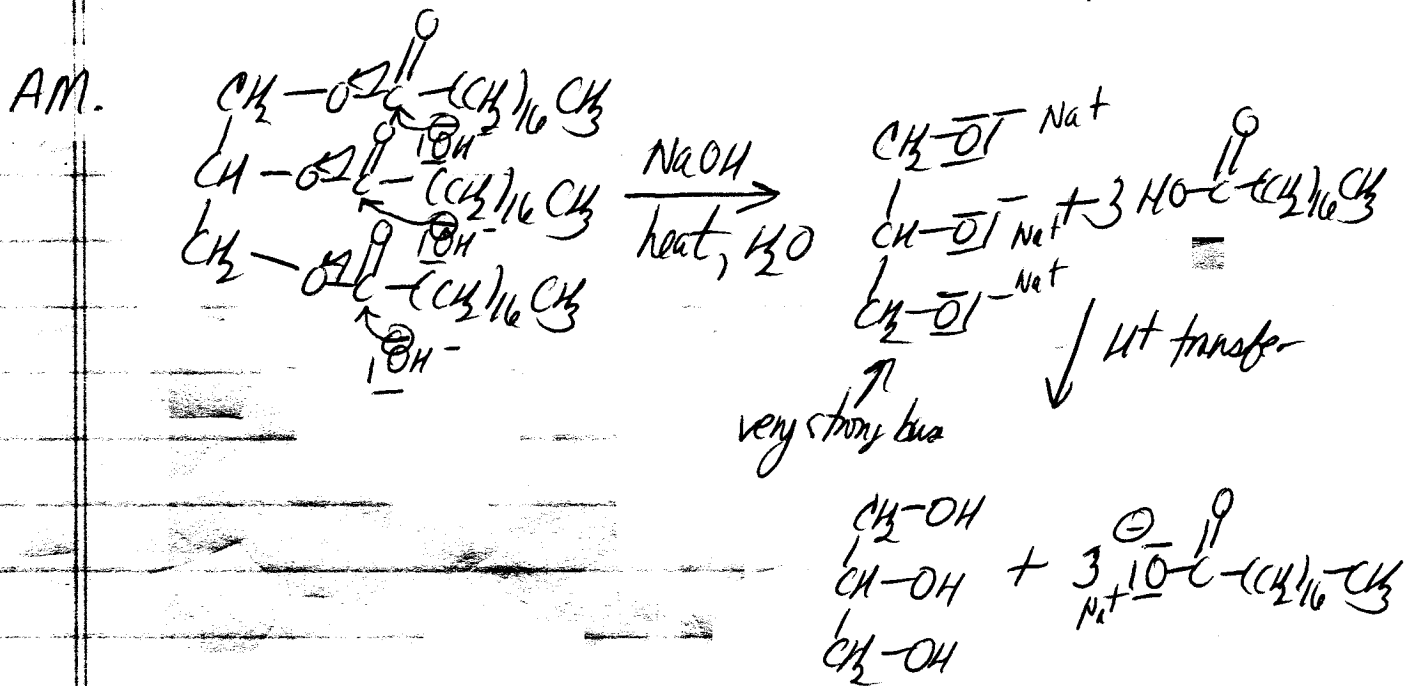 AM.
O
CH2—O—C—(CH2)16CH3
IOH-
O
CH—O—C—(CH2)16CH3
IOH-
O
CH2—O—C—(CH2)16CH3
IOH-
NaOH
heat, H2O
CH2—OI- Na+
CH—OI- Na+ + 3 HO—C—(CH2)16CH3
O
CH2—OI- Na+
very strong base
H+ transfer
CH2—OH
O
CH—OH + 3 Na+ IO—C—(CH2)16—CH3
CH2—OH